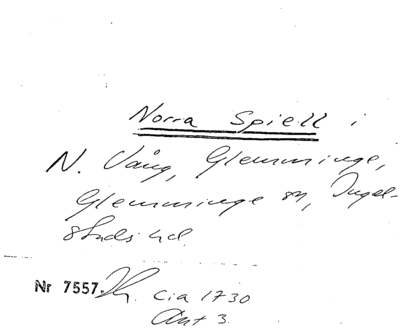 Norra Spiell i
N. Vång, Glemminge,
Glemminge sn, Ingel-
stads hd.
Nr 7557. cia 1730
Ant 3.